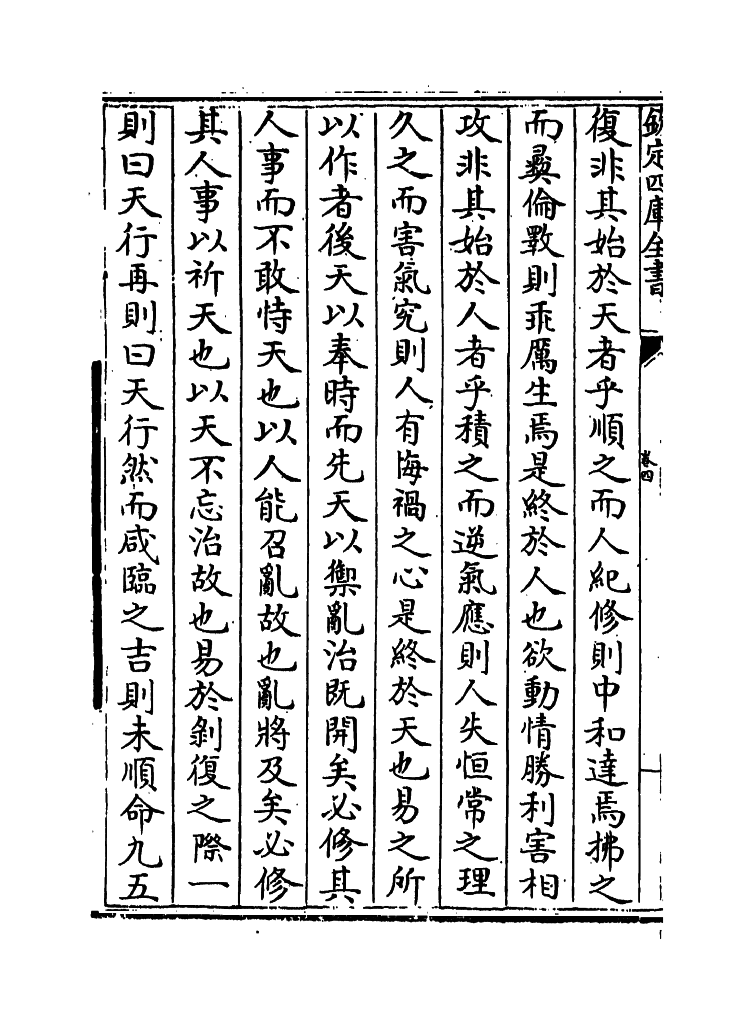 欽定四庫全書
卷四
復非其始於天者乎順之而人紀修則中和達焉拂之
而彛倫斁則乖厲生焉是終於人也欲動情勝利害相
攻非其始於人者乎積之而逆氣應則人失恒常之理
久之而害氣究則人有悔禍之心是終於天也易之所
以作者後天以奉時而先天以禦亂治既開矣必修其
人事而不敢恃天也以人能召亂故也亂將及矣必修
其人事以祈天也以天不忘治故也易於剝復之際一
則曰天行再則曰天行然而咸臨之吉則未順命九五